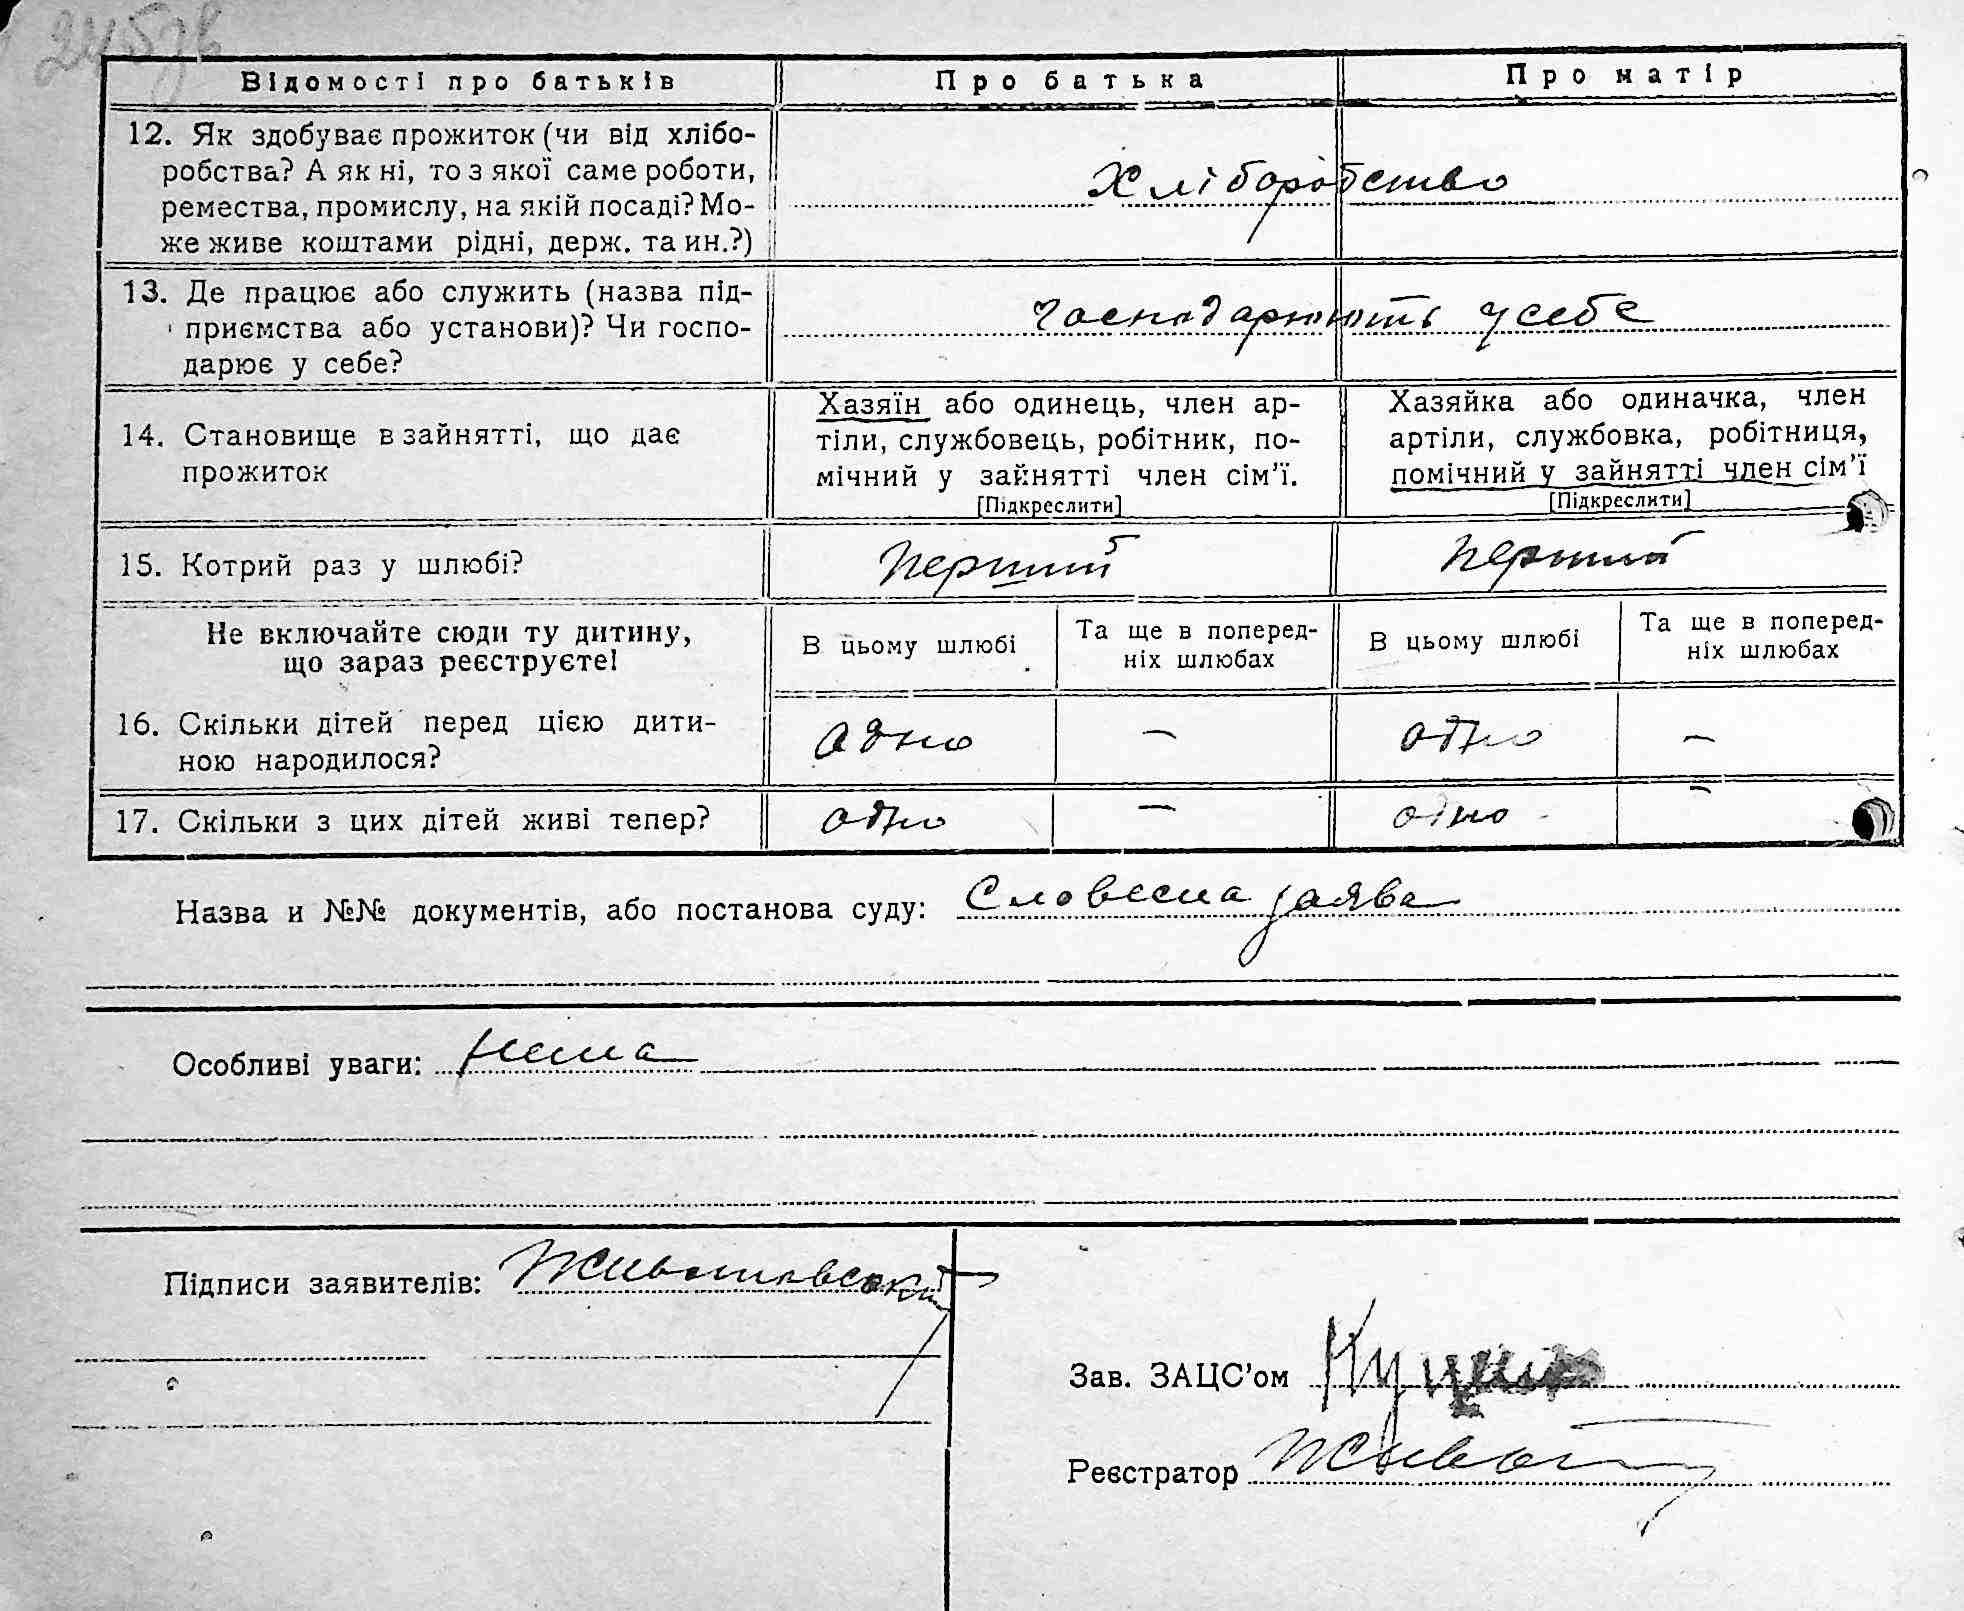 245зв
Відомості про батьків Про батька Про матір
12. Як здобуває прожиток (чи від хлібо-
робства? А як ні, то з якої саме роботи,
ремества, промислу, на якій посаді? Мо-
же живе коштами рідні, держ. та ин.?)
Хліборобство
13. Де працює або служить (назва під-
приємства або установи)? Чи госпо-
дарює у себе?
господарюють у себе
14. Становище в зайнятті, що дає
прожиток
Хазяїн або одинець, член ар-
тіли, службовець, робітник, по-
мічний у зайнятті член сім'ї.
[Підкреслити]
Хазяйка або одиначка, член
артіли, службовка, робітниця,
помічний у зайнятті член сім'ї
[Підкреслити]
15. Котрий раз у шлюбі? перший перший
Не включайте сюди ту дитину,
що зараз реєструєте!
В цьому шлюбі
Та ще в поперед-
ніх шлюбах
В цьому шлюбі
Та ще в поперед-
ніх шлюбах
16. Скільки дітей перед цією дити-
ною народилося?
одно — одно —
17. Скільки з цих дітей живі тепер? одно — одно —
Назва и №№ документів, або постанова суду: Словесна заява
Особливі уваги: нема
Підписи заявителів: Животовський
Зав. ЗАЦС'ом
Реєстратор